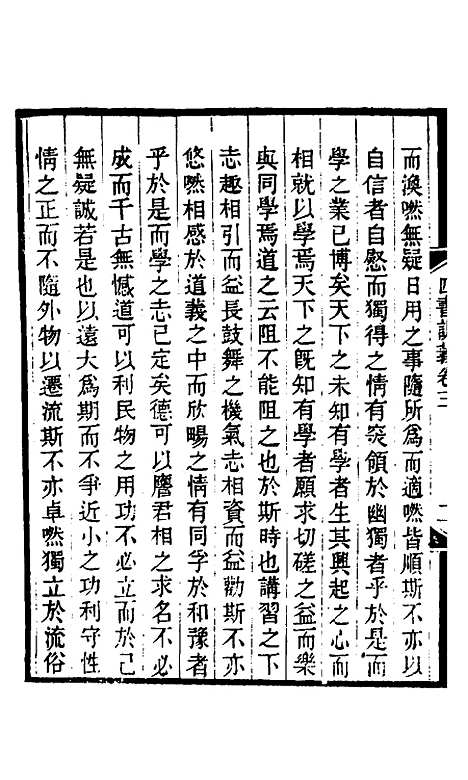 四書訓義卷三
二
而渙然無疑日用之事隨所為而適然皆順斯不亦以
自信者自慰而獨得之情有突領於幽獨者乎於是而
學之業已博矣天下之未知有學者生其興起之心而
相就以學焉天下之既知有學者願求切磋之益而樂
與同學焉道之云阻不能阻之也於斯時也講習之下
志趣相引而益長鼓舞之機氣志相資而益勸斯不亦
悠然相感於道義之中而欣暢之情有同孚於和豫者
乎於是而學之志已定矣德可以膺君相之求名不必
成而千古無憾道可以利民物之用功不必立而於己
無疑誠若是也以遠大為期而不爭近小之功利守性
情之正而不隨外物以遷流斯不亦卓然獨立於流俗